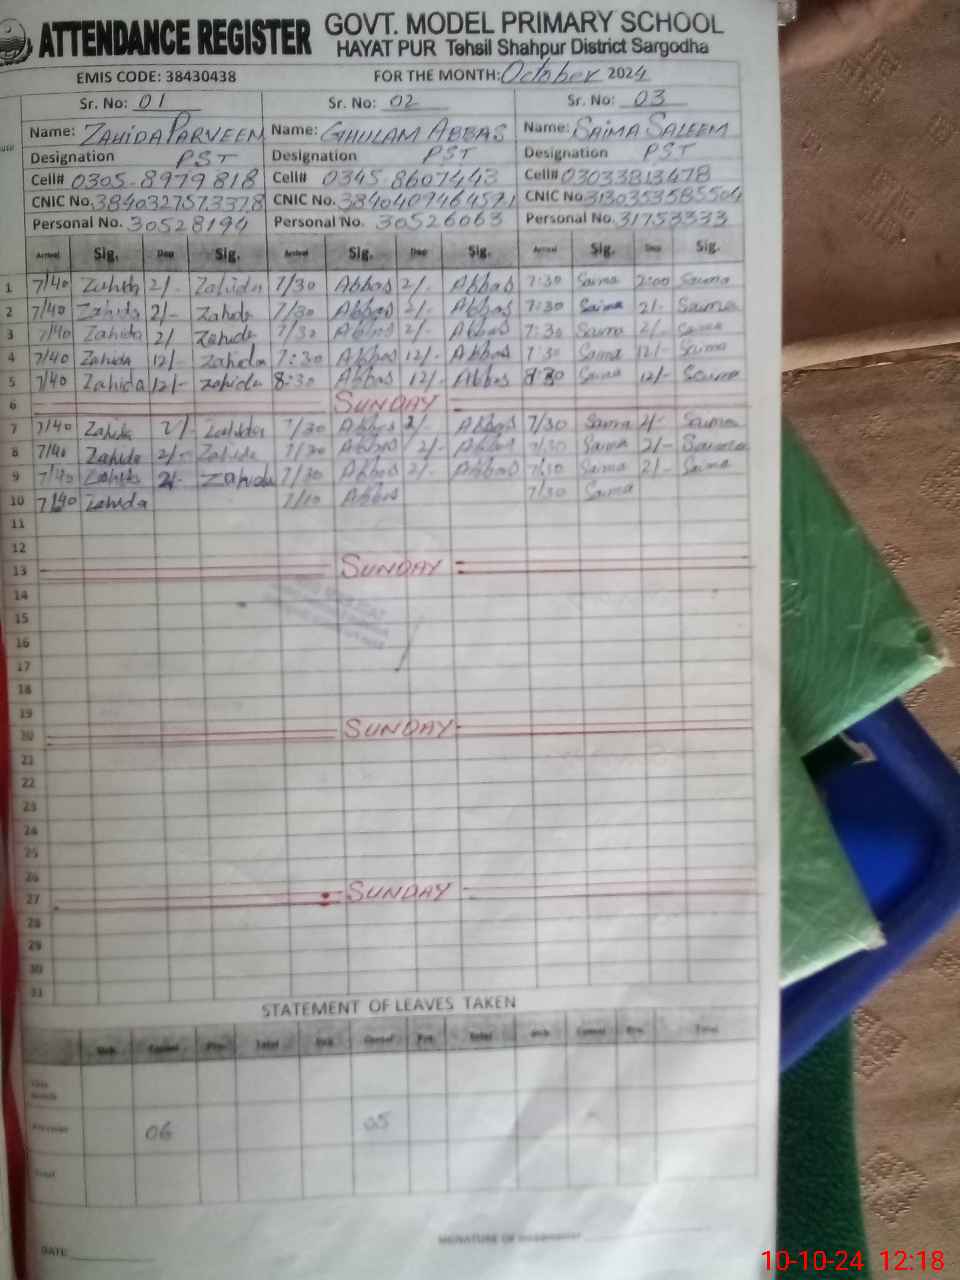 ATTENDANCE REGISTER GOVT. MODEL PRIMARY SCHOOL
HAYAT PUR Tehsil Shahpur District Sargodha
EMIS CODE: 38430438 FOR THE MONTH: October 2024
Sr. No: 01 Sr. No: 02 Sr. No: 03
Name: ZAHIDA PARVEEN Name: GHULAM ABBAS Name: SAIMA SALEEM
Designation PST Designation PST Designation PST
Cell# 0305-8979818 Cell# 0345-8607443 Cell# 03033813478
CNIC No. 3840327573378 CNIC No. CNIC No. 3130353585504
Personal No. 30528194 Personal No. 30526063 Personal No. 31753333
Arrival Sig. Dep Sig. Arrival Sig. Dep Sig. Arrival Sig. Dep Sig.
1 7/40 Zahida 2/- Zahida 7/30 Abbas 2/- Abbas 7:30 Saima 2:00 Saima
2 7/40 Zahida 2/- Zahida 7/30 Abbas 2/- Abbas 7:30 Saima 2/- Saima
3 7/40 Zahida 2/ Zahida 7/30 Abbas 2/- Abbas 7:30 Saima 2/- Saima
4 7/40 Zahida 12/- Zahida 7:30 Abbas 12/- Abbas 7:30 Saima 12/- Saima
5 7/40 Zahida 12/- Zahida 8:30 Abbas 12/- Abbas 8:30 Saima 12/- Saima
6 SUNDAY
7 7/40 Zahida 2/- Zahida 7/30 Abbas 2/- Abbas 7/30 Saima 2/- Saima
8 7/40 Zahida 2/- Zahida 7/30 Abbas 2/- Abbas 7/30 Saima 2/- Saima
9 7/40 Zahida 2/- Zahida 7/30 Abbas 2/- Abbas 7/30 Saima 2/- Saima
10 7/40 Zahida Abbas 7/30 Saima
11
12
13 SUNDAY
14
15
16
17
18
19
20 SUNDAY
21
22
23
24
25
26
27 SUNDAY
28
29
30
31
STATEMENT OF LEAVES TAKEN
Casual Total Casual Total Casual Total
06 05
Total
DATE SIGNATURE OF
10-10-24 12:18